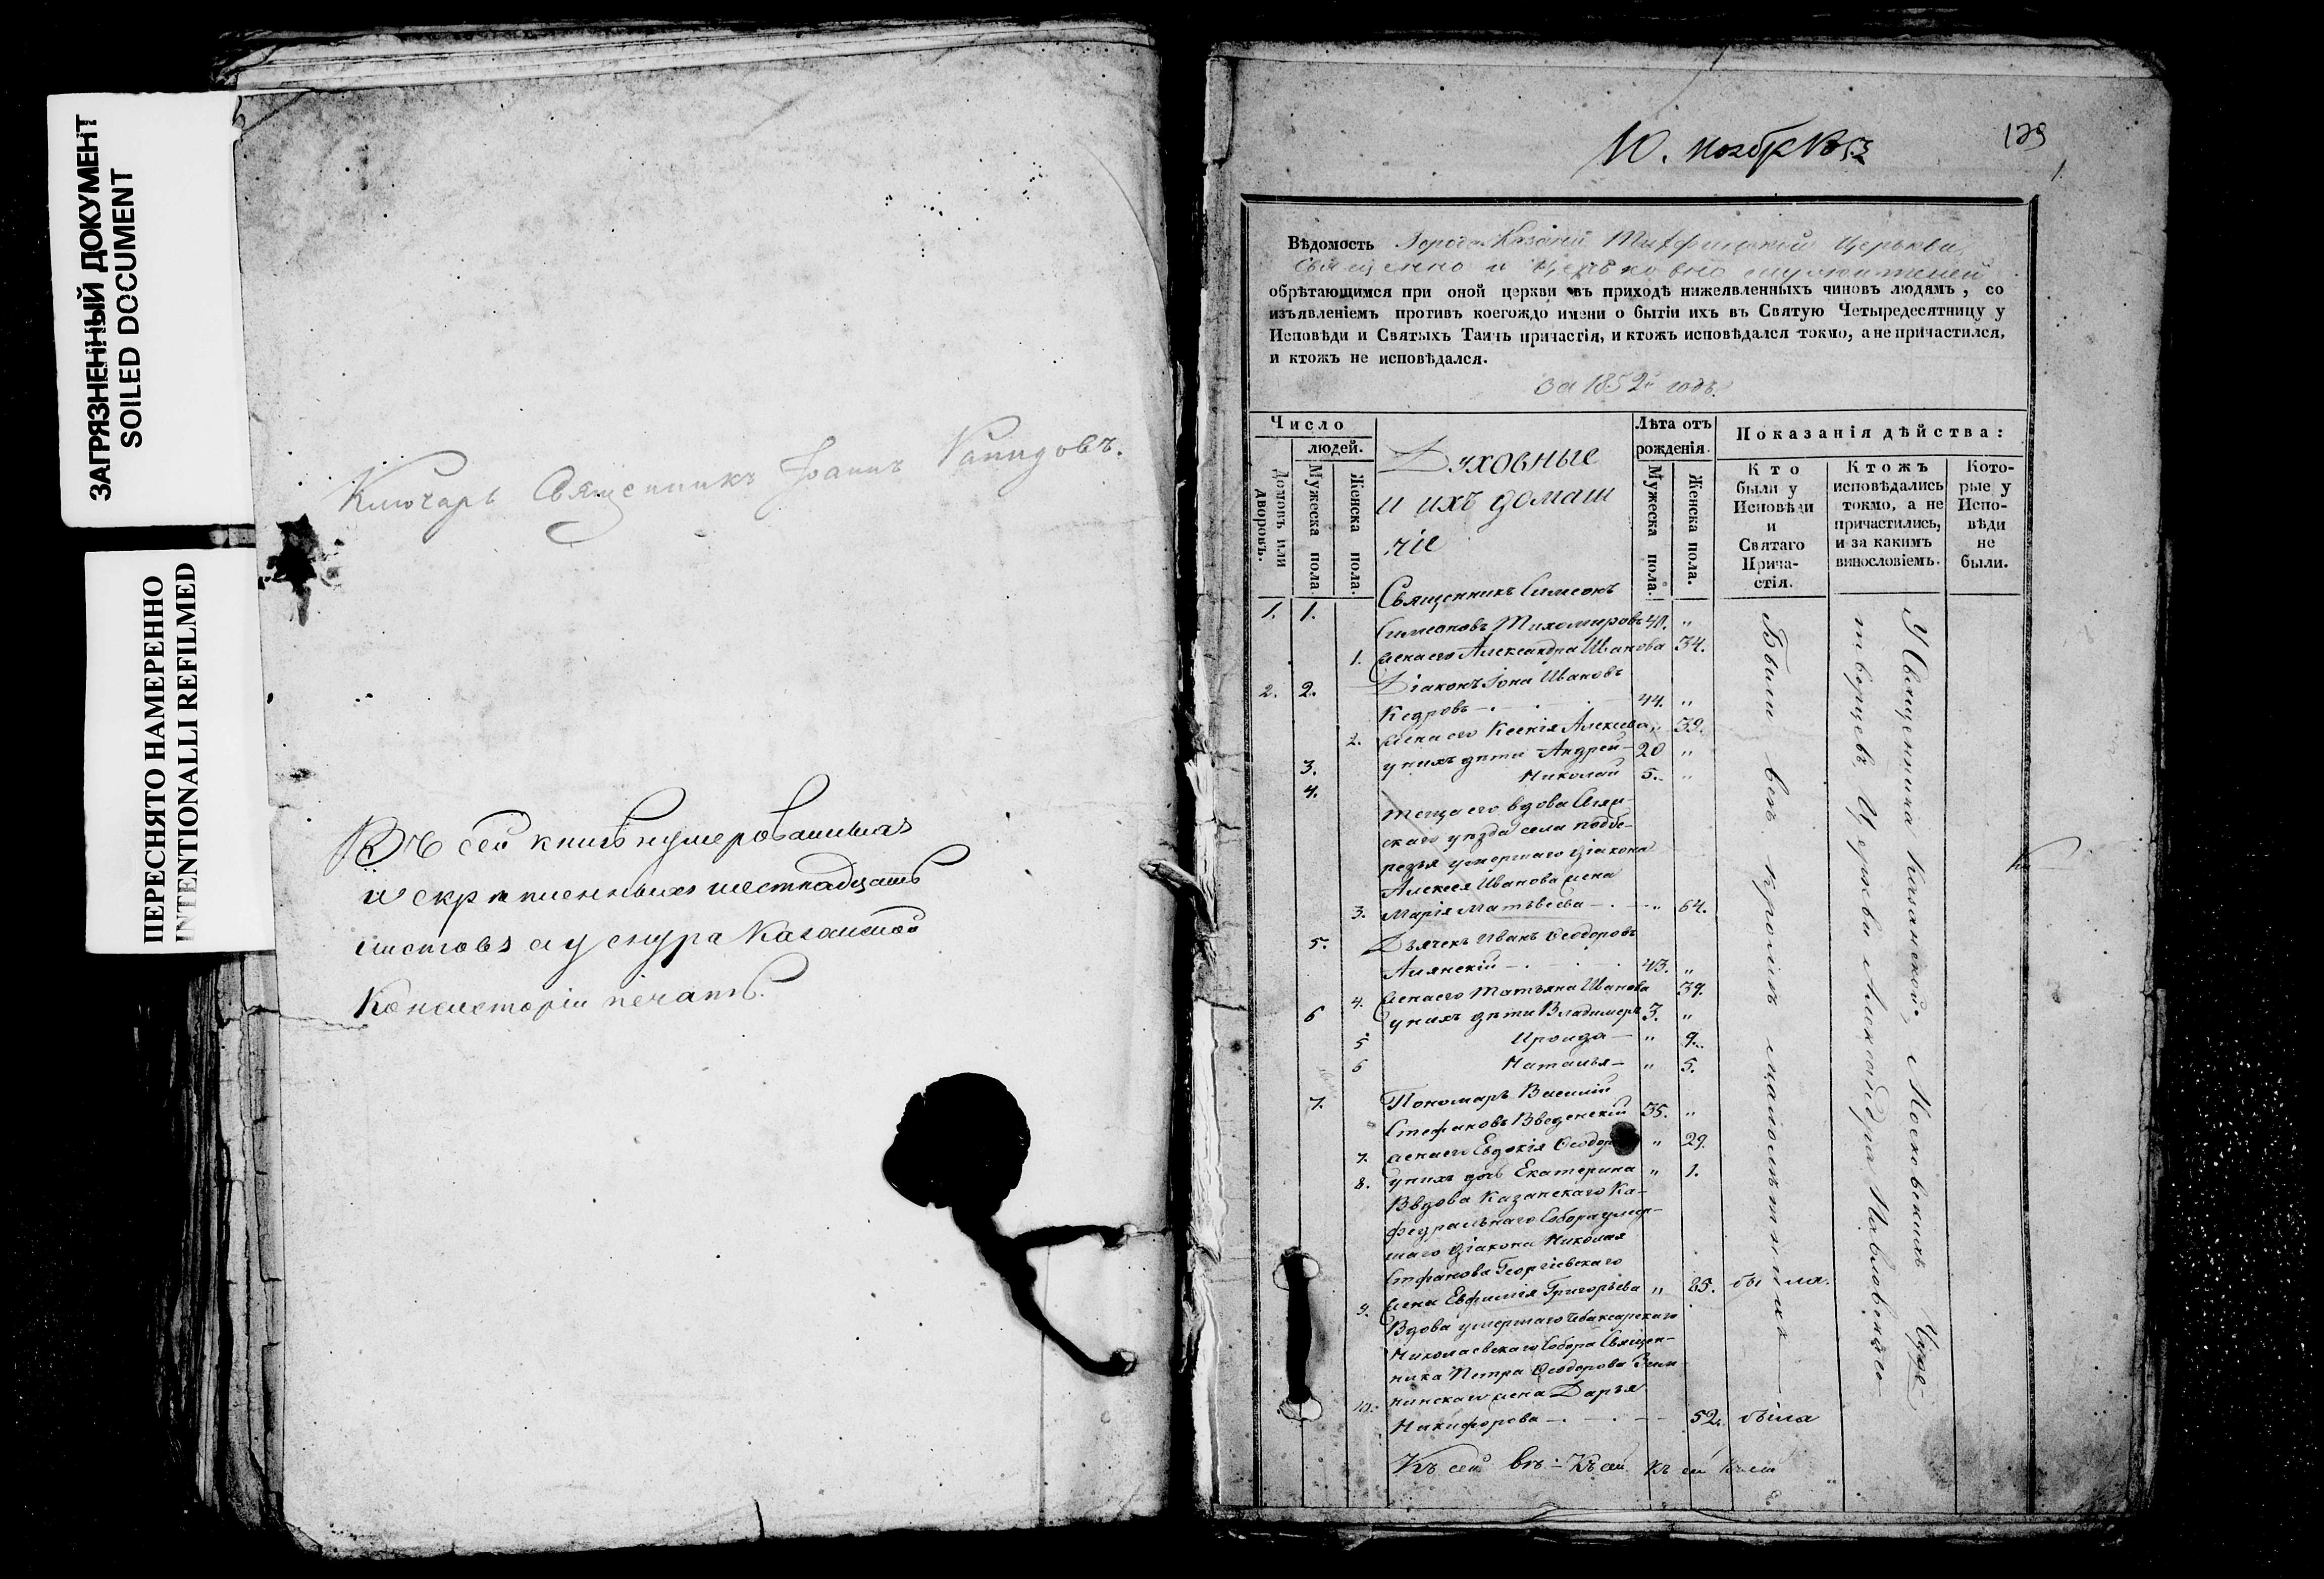 ЗАГРЯЗНЕННЫЙ ДОКУМЕНТ
SOILED DOCUMENT
ПЕРЕСНЯТО НАМЕРЕННО
INTENTIONALLI REFILMED
Ключарь Священникъ Іоаннъ
Въ сей книгѣ нумерованныхъ
и скрѣпленныхъ шестнадцать
листовъ а у снура Казанской
Консисторіи печать.
10. ноября
129
Вѣдомость Города Казани Тихфинской Церькви
священно и церьковно служителей
обрѣтающимся при оной церкви въ приходѣ нижеявленныхъ чиновъ людямъ, со
изъявленіемъ противъ коегождо имени о бытіи ихъ въ Святую Четыредесятницу у
Исповѣди и Святыхъ Таинъ причастія, и ктожъ исповѣдался токмо, а не причастился,
и ктожъ не исповѣдался.
за 1852й годъ.
Число
людей.
Домовъ или дворовъ.
Мужеска пола.
Женска пола.
Духовные
и ихъ домаш
ніе
Лѣта отъ
рожденія.
Мужеска пола.
Женска пола.
Показанія дѣйства:
Кто
были у
Исповѣди
и
Святаго
Прича-
стія.
Ктожъ
исповѣдались
токмо, а не
причастились,
и за какимъ
винословіемъ.
Кото-
рые у
Испо-
вѣди
не
были.
1. 1. Священникъ Симеонъ
Симеоновъ Тихомировъ 40. "
1. жена его Александра Иванова 34.
2. 2. Діаконъ Іона Ивановъ
Кедровъ 44. "
2. жена его Ксенія Алексѣева " 39.
3. у нихъ дѣти Андрей 20 "
4. Николай 5. "
теща его вдова
скаго уѣзда села подбе-
резья умершаго діакона
Алексея Иванова жена
3. Марія Матвѣева " 64.
5. Дьячекъ Иванъ Ѳеодоровъ
43. "
4. жена его Татьяна Иванова 39.
6 у нихъ дѣти Владимеръ 3. "
5 Ироида " 9.
6 Наталья " 5.
7. Пономарь Василій
Стефановъ Введенскій 35. "
7. жена его Евдокія " 29.
8. у нихъ дочь Екатерина " 1.
Вдова Казанскаго Ка-
федральнаго Собора умер-
шаго діакона Николая
Стефанова Георгіевскаго
9. жена Евфимія Григорьева " 85. была.
Вдова умершаго Чебаксарскаго
Николаевскаго Собора Священ-
ника Петра Ѳеодорова
10. жена Дарья
Никифорова 52. была
Были всѣ кромѣ малолѣтнихъ
У Священника Казанской, Московскихъ Чудо-
творцевъ, Церкви Александра Павловскаго